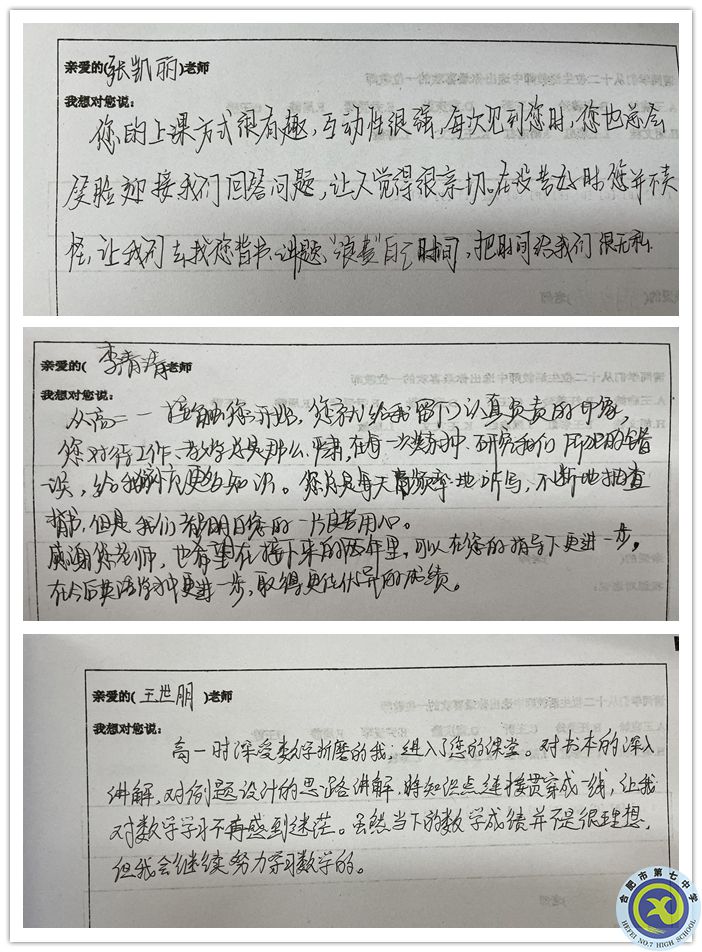 亲爱的(张凯丽)老师
我想对您说:
您的上课方式很有趣,互动性很强,每次见到您时,您也总会
笑脸迎接我们回答问题,让人觉得很亲切。在没背好时,您并不责
怪,让我们去找您背书、讲题,“浪费”自己时间,把时间给我们很无私.
亲爱的(李青清老师
我想对您说:
从高二一接触您开始,您就给我留下认真负责的印象,
您对待工作、教学总是那么严肃,在每一次上
误,给我们
知识。您总是每天高频率地听写,不断地抽查
背书,但是我们都明白您的一片良苦用心。
感谢您老师,也希望在接下来的两年里,可以在您的指导下更进一步,
在今后英语学习中更进一步,取得更佳优异的成绩。
亲爱的(王世朋)老师
我想对您说:
高一时深受数学折磨的我,进入了您的课堂。对书本的深入
讲解,对例题设计的思路讲解,将知识点连接贯穿成一线,让我
对数学学习不再感到迷茫。虽然当下的数学成绩并不是很理想,
但我会继续努力学习数学的。
合肥市第七中学
HEFEI NO.7 HIGH SCHOOL